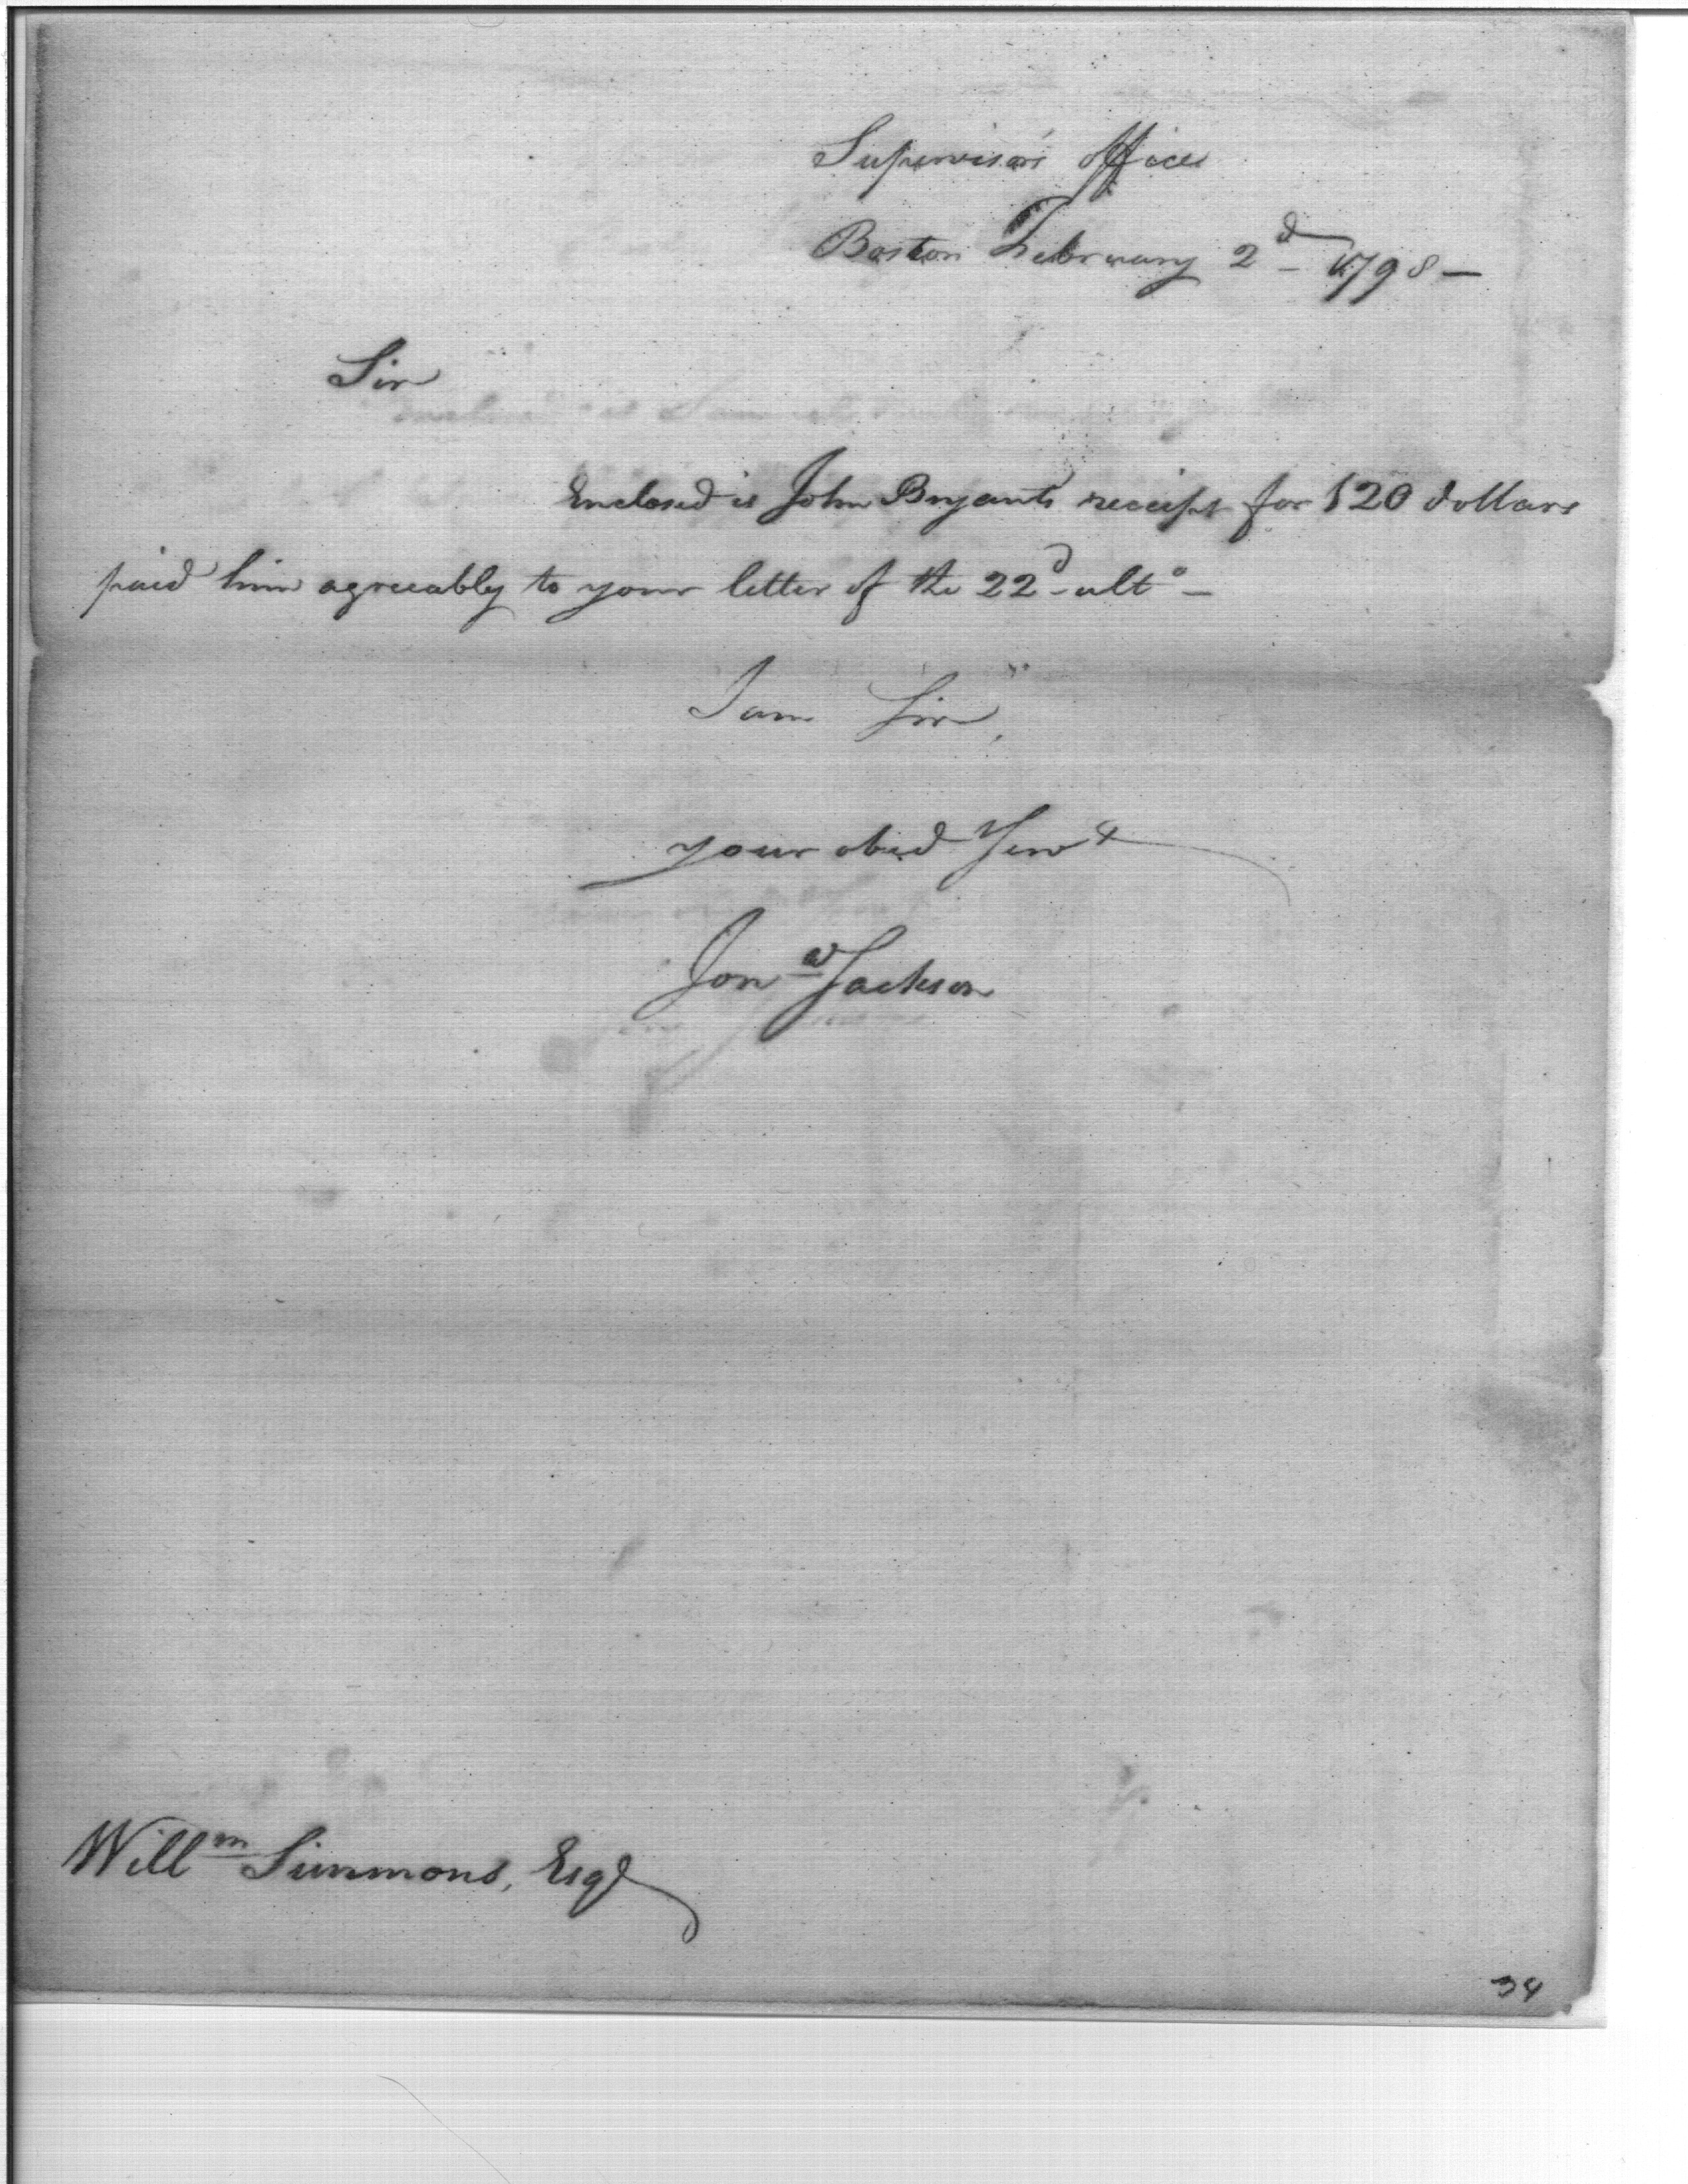 Supervisor's office
Boston February 2d - 1798 -
Sir
Enclosed is John Bryants receipt for 120 dollars
paid him agreeably to your letter of the 22d - ulto -
I am Sir,
your obed Servt
Jona Jackson
Willm Simmons, Esqr
34